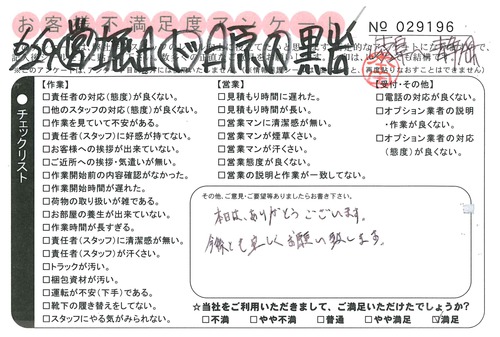 お客様不満足度アンケート
No 029196
チェックリスト
【作業】
□責任者の対応(態度)が良くない。
□他のスタッフの対応(態度)が良くない。
□作業を見ていて不安がある。
□責任者(スタッフ)に好感が持てない。
□お客様への挨拶が出来ていない。
□ご近所への挨拶・気遣いが無い。
□作業開始前の内容確認がなかった。
□作業開始時間が遅れた。
□荷物の取り扱いが雑である。
□お部屋の養生が出来ていない。
□作業時間が長すぎる。
□責任者(スタッフ)に清潔感が無い。
□責任者(スタッフ)が汗くさい。
□トラックが汚い。
□梱包資材が汚い。
□運転が不安(下手)である。
□靴下の履き替えをしてない。
□スタッフにやる気がみられない。
【営業】
□見積もり時間に遅れた。
□見積もり時間が長い。
□営業マンに清潔感が無い。
□営業マンが煙草くさい。
□営業マンが汗くさい。
□営業態度が良くない。
□営業の説明と作業が一致してない。
【受付・その他】
□電話の対応が良くない。
□オプション業者の説明
・作業が良くない。
□オプション業者の対応
(態度)が良くない。
その他、ご意見・ご要望等ありましたらお書き下さい。
本日は、ありがとうございます。
今後とも宜しくお願い致します。
☆当社をご利用いただきまして、ご満足いただけたでしょうか?
□不満 □やや不満 □普通 □やや満足 □満足